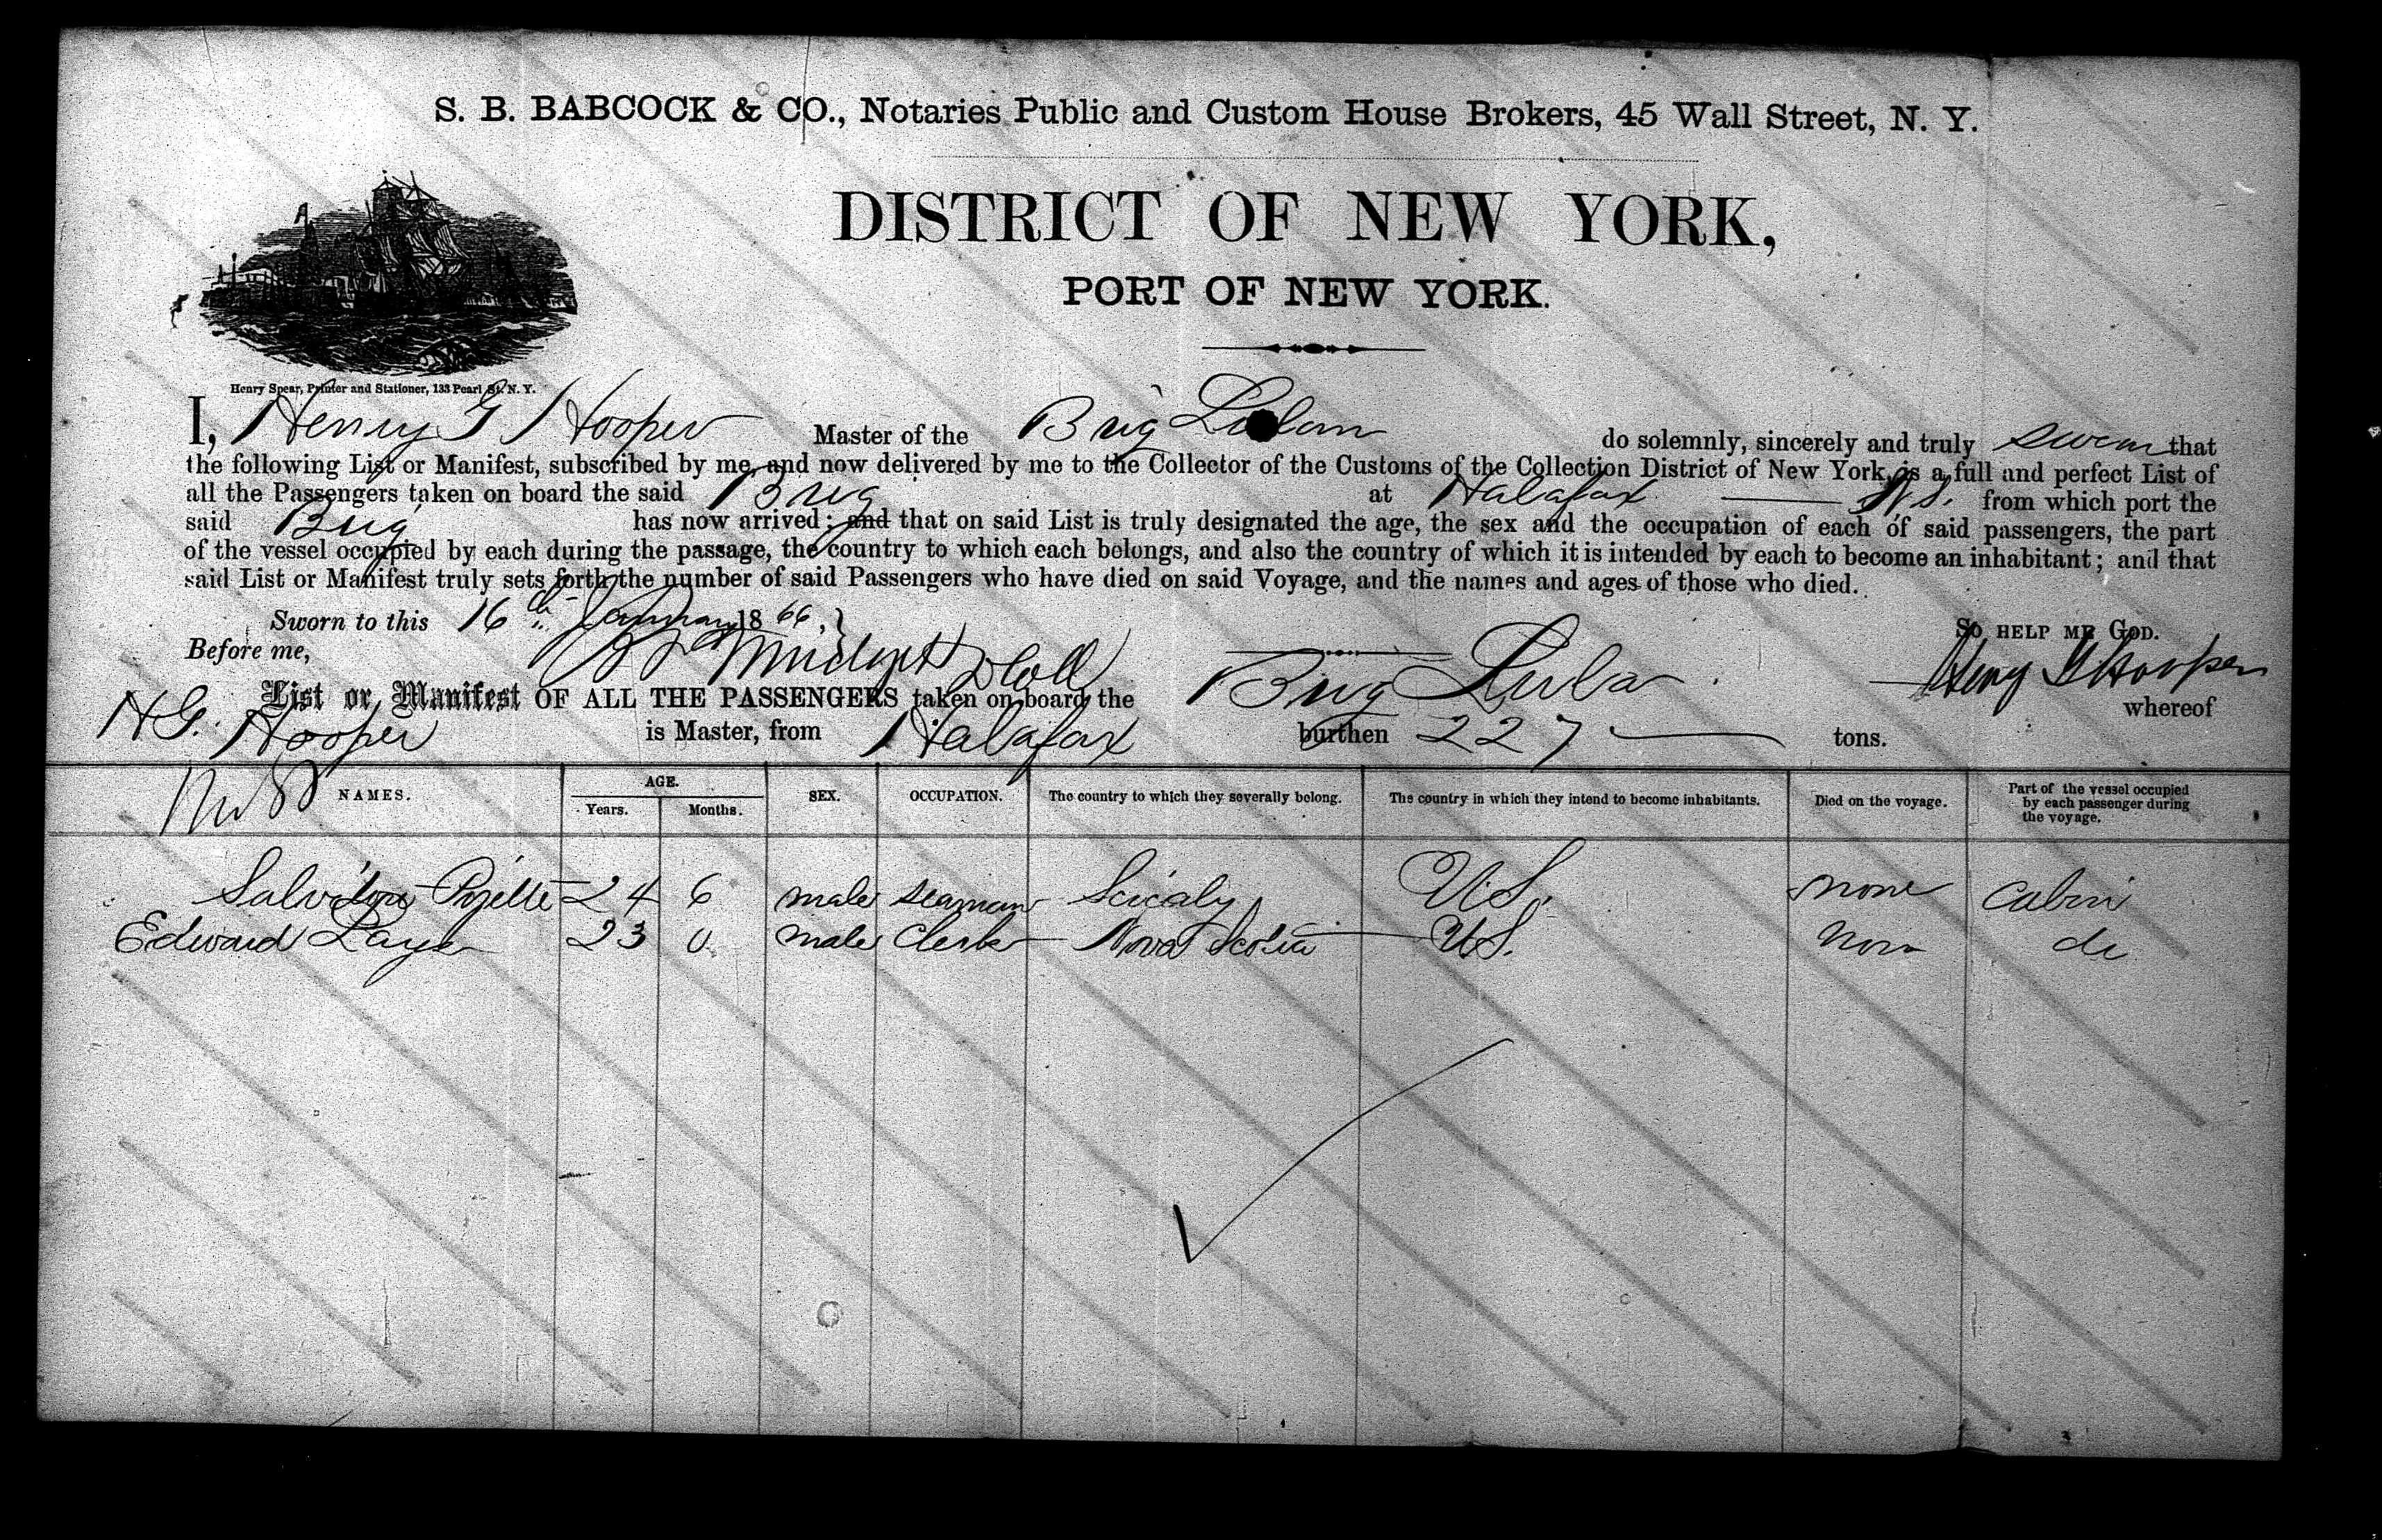 S. B. BABCOCK & CO., Notaries Public and Custom House Brokers, 45 Wall Street, N. Y.
DISTRICT OF NEW YORK,
PORT OF NEW YORK.
Henry Spear, Printer and Stationer, 133 Pearl St. N. Y.
I, Henry G Hooper Master of the Brig do solemnly, sincerely and truly swear that
the following List or Manifest, subscribed by me, and now delivered by me to the Collector of the Customs of the Collection District of New York, is a full and perfect List of
all the Passengers taken on board the said Brig at Halafax N.S. from which port the
said Brig has now arrived; and that on said List is truly designated the age, the sex and the occupation of each of said passengers, the part
of the vessel occupied by each during the passage, the country to which each belongs, and also the country of which it is intended by each to become an inhabitant; and that
said List or Manifest truly sets forth the number of said Passengers who have died on said Voyage, and the names and ages of those who died.
Sworn to this 16th January 1866, So HELP ME GOD.
Before me, Henry G Hooper
List or Manifest OF ALL THE PASSENGERS taken on board the Brig Lula whereof
H G. Hooper is Master, from Halafax burthen 227 tons.
NAMES. AGE. Years. Months. SEX. OCCUPATION. The country to which they severally belong. The country in which they intend to become inhabitants. Died on the voyage. Part of the vessel occupied by each passenger during the voyage.
24 6 male seaman Scicaly U.S. none cabin
Edward 23 0 male Clerk Nova Scotia U.S. non do